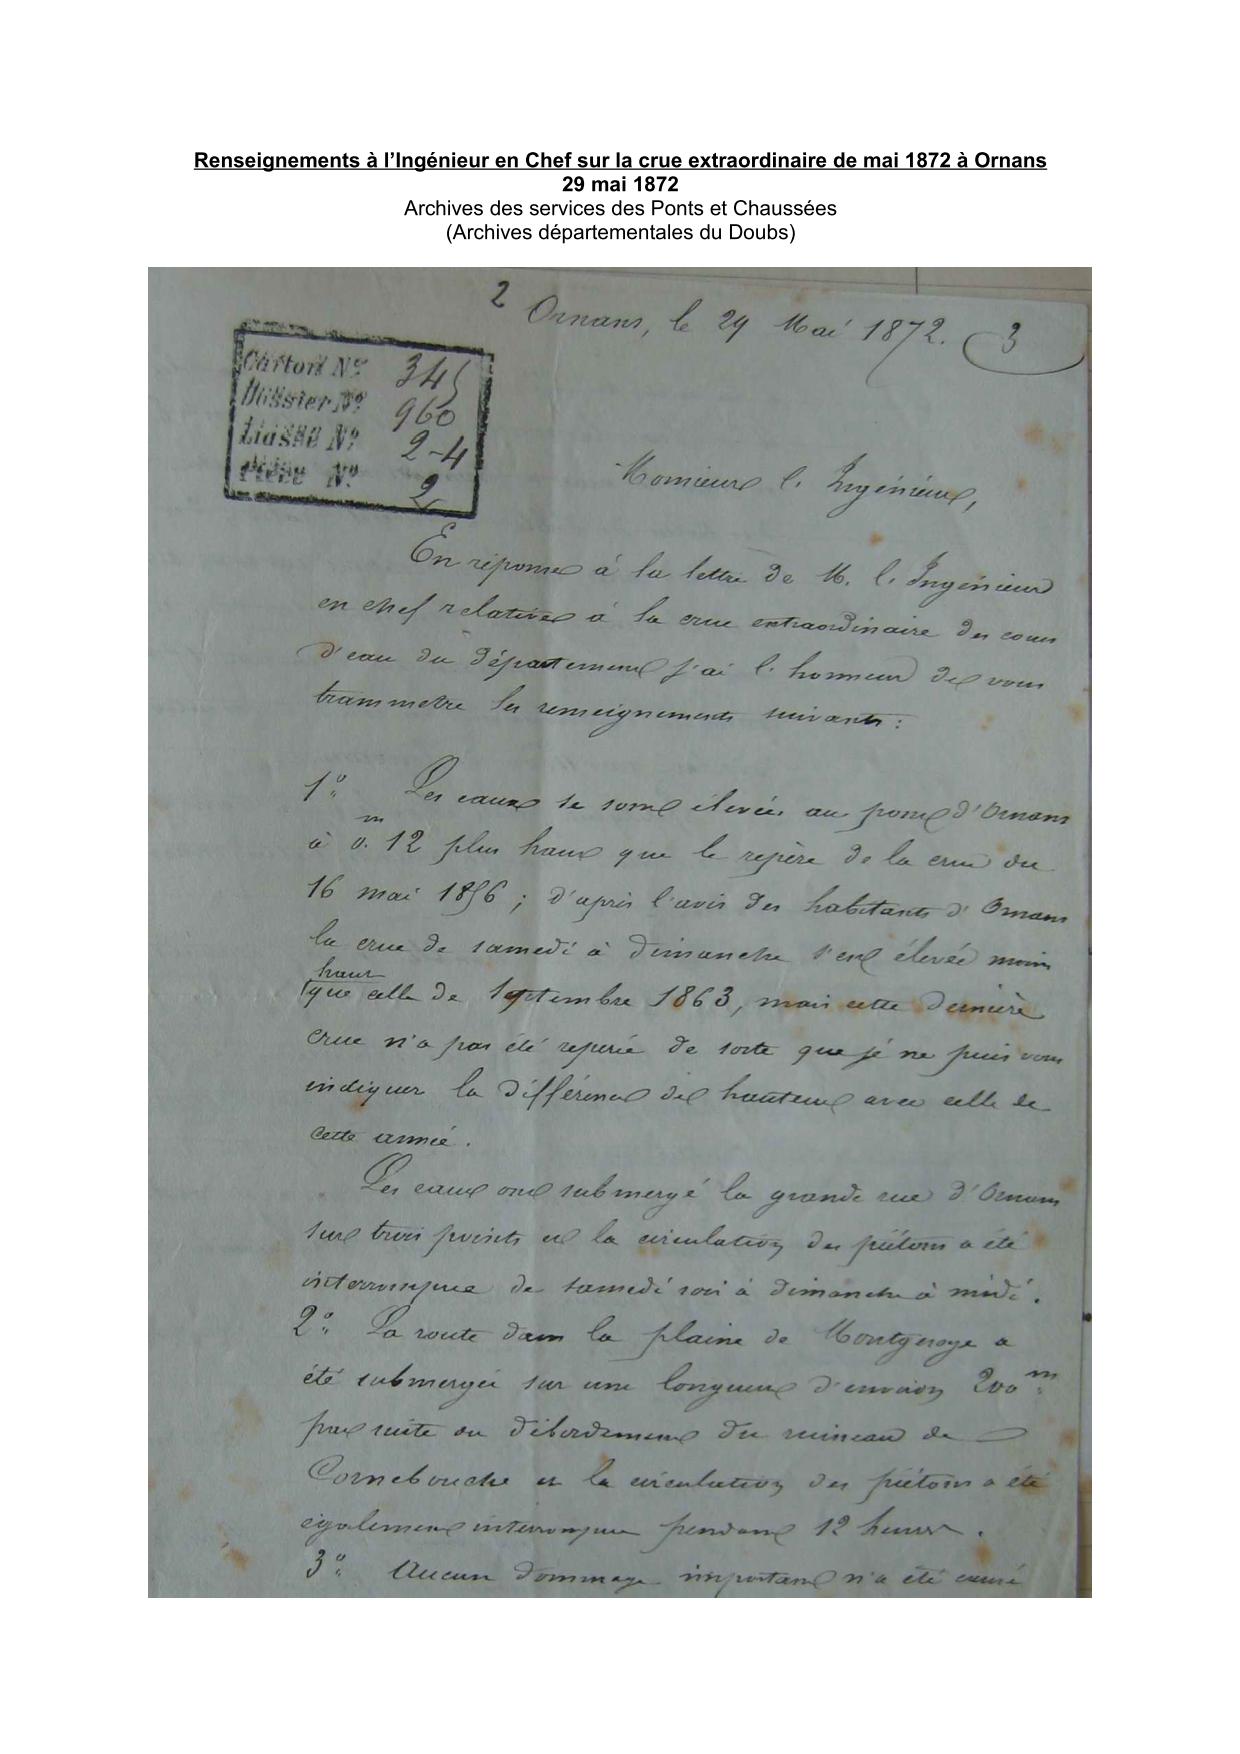 Renseignements à l’Ingénieur en Chef sur la crue extraordinaire de mai 1872 à Ornans
29 mai 1872
Archives des services des Ponts et Chaussées
(Archives départementales du Doubs)
2 Ornans, le 29 Mai 1872. 3
Carton Nº 345
Dossier Nº 960
Liasse Nº 2-4
Pièce Nº 2
Monsieur l'Ingénieur,
En réponse à la lettre de M. l'Ingénieur
en chef relative à la crue extraordinaire des cours
d'eau du département j'ai l'honneur de vous
transmettre les renseignements suivants :
1º Les eaux se sont élevées au pont d'Ornans
à 0.m 12 plus haut que le repère de la crue du
16 mai 1856 ; d'après l'avis des habitants d'Ornans
la crue de samedi à dimanche s'est élevée moins
haut
que celle de septembre 1863, mais cette dernière
crue n'a pas été reperée de sorte que je ne puis vous
indiquer la différence de hauteur avec celle de
cette année.
Les eaux ont submergé la grande rue d'Ornans
sur trois points et la circulation des piétons a été
interrompue de samedi soir à dimanche à midi.
2º La route dans la plaine de Montgesoye a
été submergée sur une longueur d'environ 200 m
par suite du débordement du ruisseau de
Cornebouche et la circulation des piétons a été
également interrompue pendant 12 heures.
3º Aucun dommage important n'a été causé